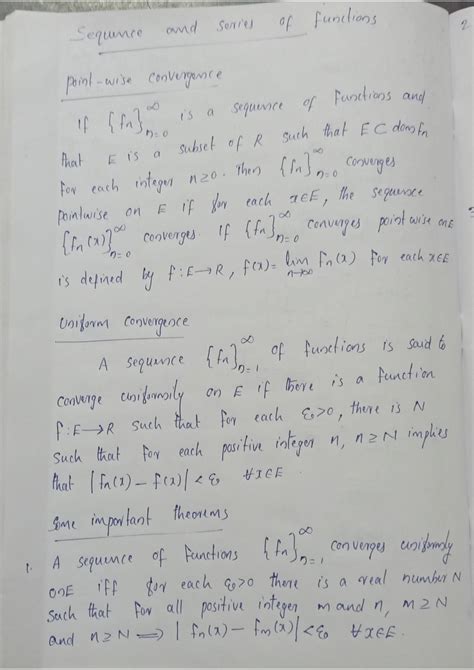 Sequence and series of functions
2
point-wise convergence
If {fn}∞n=0 is a sequence of functions and
that E is a subset of R such that E ⊂ dom fn
for each integer n≥0. Then {fn}∞n=0 converges
pointwise on E if for each x∈E, the sequence
{fn(x)}∞n=0 converges. If {fn}∞n=0 converges point wise on E
is defined by f:E→R, f(x)= lim n→∞ fn(x) for each x∈E
Uniform convergence
A sequence {fn}∞n=1 of functions is said to
converge uniformily on E if there is a function
f:E→R such that for each ε0>0, there is N
such that for each positive integer n, n≥N implies
that |fn(x) – f(x)| < ε0 ∀x∈E
Some important theorems
1. A sequence of functions {fn}∞n=1 converges uniformly
on E iff for each ε0>0 there is a real number N
such that for all positive integer m and n, m≥N
and n≥N ⟹ |fn(x) – fm(x)| < ε0 ∀x∈E.